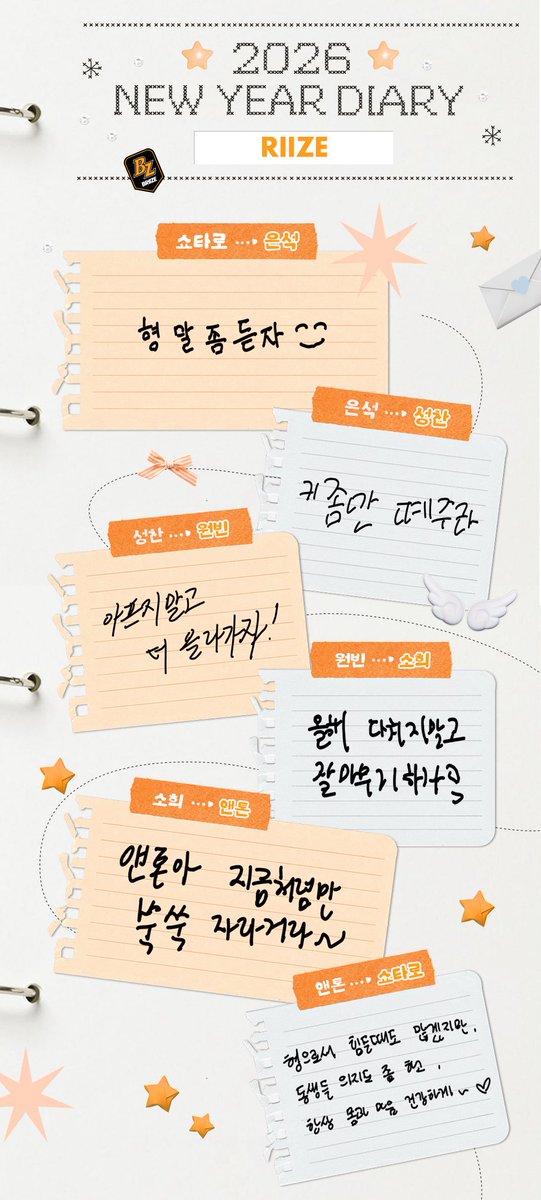 2026
NEW YEAR DIARY
RIIZE
BZ
BRIIZE
쇼타로 ···› 은석
형 말 좀 듣자
은석 ···› 성찬
키 좀만 떼주라
성찬 ···› 원빈
아프지말고
더 올라가자!
원빈 ···› 소희
올해 다치지말고
잘 마무리하자
소희 ···› 앤톤
앤톤아 지금처럼만
쑥쑥 자라거라~
앤톤 ···› 쇼타로
형으로서 힘들때도 많겠지만,
동생들 의지도 좀 혀,
항상 몸과 마음 건강하게~ ♡